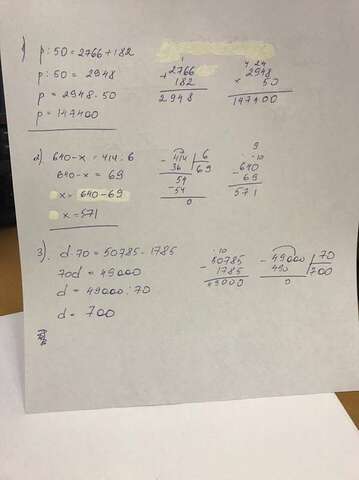 1) p:50 = 2766 + 182
p:50 = 2948
p = 2948 · 50
p = 147400
+ 2766
182
2948
4 24
2948
× 50
147400
2) 640 - x = 414 : 6
640 - x = 69
x = 640 - 69
x = 571
- 414 | 6
36 | 69
54
- 54
0
9
· · 10
- 640
69
571
3). d · 70 = 50785 - 1785
70d = 49000
d = 49000 : 70
d = 700
· 10
- 50785
1785
49000
- 49000 | 70
490 | 700
0